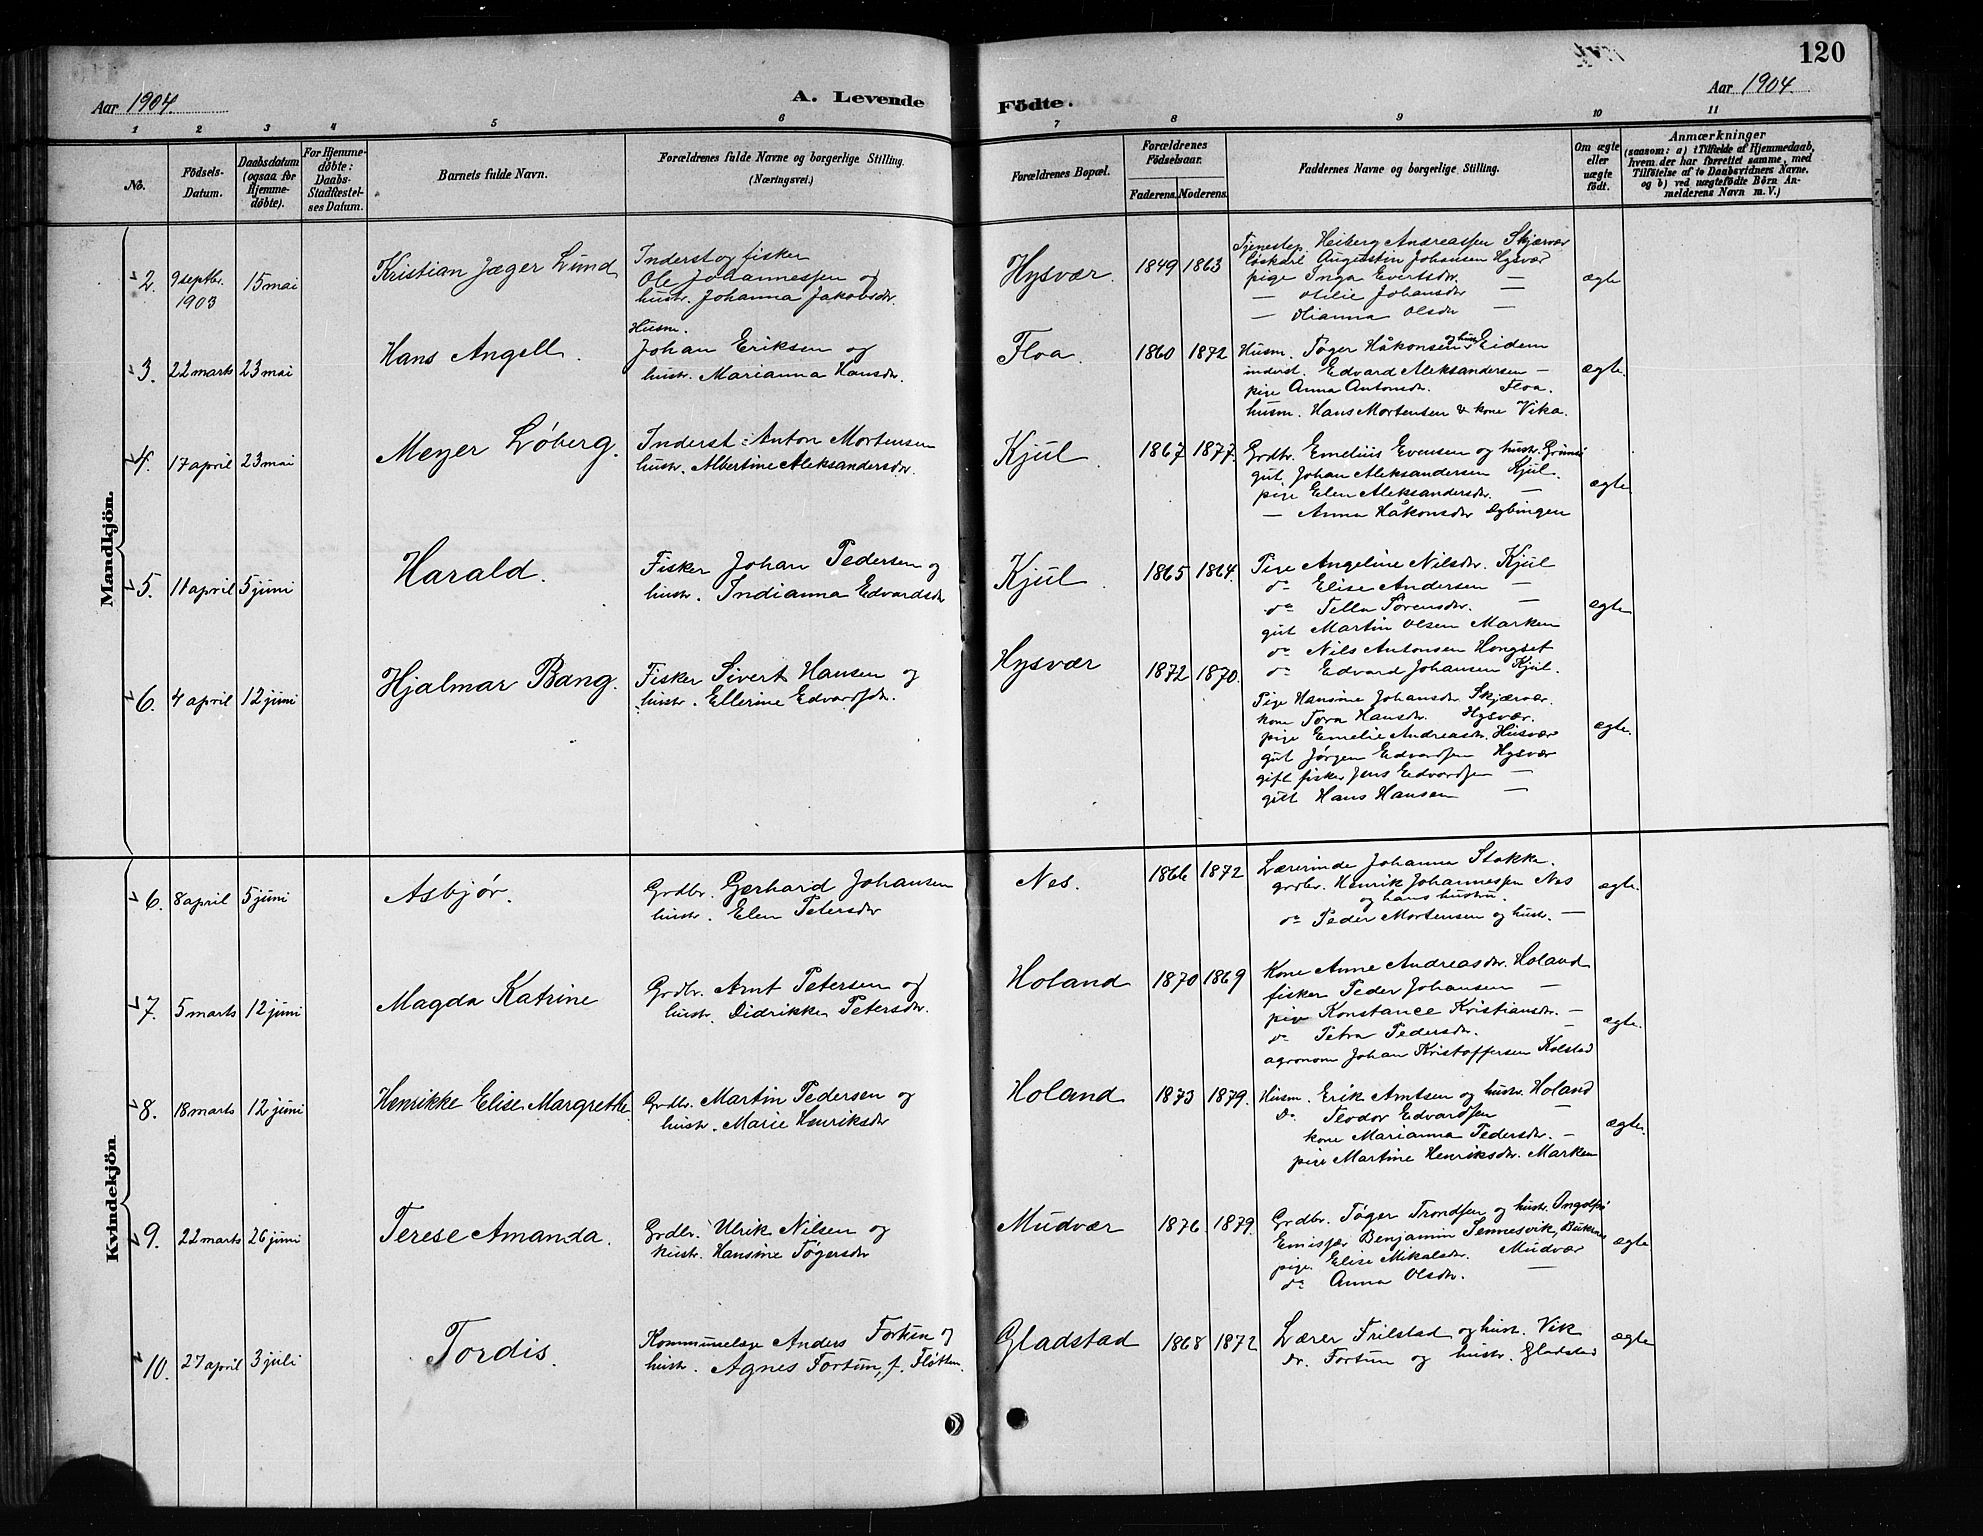 120
Aar 1904.
A. Levende Födte.
Aar 1904.
1 2 3 4 5 6 7 8 9 10 11
No.
Födsels-Datum.
Daabsdatum (ogsaa for Hjemme-döbte).
For Hjemme-döbte: Daabs-Stadfæstel-ses Datum.
Barnets fulde Navn.
Forældrenes fulde Navne og borgerlige Stilling. (Næringsvei.)
Forældrenes Bopæl.
Forældrenes Födselsaar.
Faderens. Moderens.
Faddernes Navne og borgerlige Stilling.
Om ægte eller uægte født.
Anmærkninger (saasom: a) i Tilfælde af Hjemmedaab, hvem der har forrettet samme, med Tilføielse af to Daabsvidners Navne, og b) ved uægtefödte Börn An-melderens Navn m. V.)
Mandkjön.
2. 9 septbr. 1903 15 mai Kristian Jæger Lund
Inderst og fisker
Ole Johannessen og
hustr. Johanna Jakobsdr.
Hysvær 1849 1863
Tjenestep. Heiberg Andreassen Skjærvær
løskarl Augustin Johansen Hysvær
pige Inga Evertsdr —
— Otilie Johansdr —
— Olsdr —
ægte
3. 22 marts 23 mai Hans Angell.
Husm.
Johan Eriksen og
hustr. Marianna Hansdr.
Floa. 1860 1872
Husm. Tøger Håkonsen og hust. Eidem
inderst. Edvard Aleksandersen —
pige Anna Antonsdr. Floa.
husm. Hans Mortensen & kone Vika.
ægte.
4. 17 april 23 mai Meyer Løberg.
Inderst Anton Mortensen
hustr. Albertine Aleksandersdr.
Kjul. 1867 1877.
Grdbr. Emelius Evensen og hustr.
gut Johan Aleksandersen Kjul.
pige Elen Aleksandersdr. —
— Anna Håkonsdr Dybingen
ægte.
5. 11 april 5 juni Harald.
Fisker Johan Pedersen og
hustr. Indianna Edvardsdr
Kjul. 1865 1864.
Pige Angeline Nilsdr. Kjul
do Elise Andersen —
do Tella Sørensdr. —
gut Martin Olsen Marken
do Nils Antonsen Hongset
do Edvard Johansen Kjul.
ægte
6. 4 april 12 juni Hjalmar Bang.
Fisker Sivert Hansen og
hustr. Ellerine Edvardsdr.
Hysvær 1872 1870.
Pige Hansine Johansdr Skjærvær.
kone Tora Hansdr. Hysvær.
pige Emelie Andreasdr. Husvær
gut Jørgen Edvardsen Hysvær
gift fisker Jens Edvardsen —
gut Hans Hansen —
ægte.
Kvindekjön.
6. 8 april 5 juni Asbjør.
Grdbr. Gerhard Johansen
hustr. Elen Petersdr
Nes. 1866 1872
Lærerinde Johanna Stokke.
grdbr. Henrik Johannessen Nes
og hans hustru.
do Peder Mortensen og hust. —
ægte.
7. 5 marts 12 juni Magda Katrine
Grdbr. Arnt Petersen og
hustr. Didrikke Petersdr.
Holand 1870 1869
Kone Anne Andreasdr. Holand
fisker Peder Johansen —
pige Konstance Kristiansdr. —
do Petra Pedersdr. —
agronom Johan Kristoffersen Kolstad
ægte.
8. 18 marts 12 juni Henrikke Elise Margrethe
Grdbr. Martin Pedersen og
hustr. Marie Henriksdr
Holand 1873 1879.
Husm. Erik Arntsen og hustr. Holand
Do Teodor Edvardsen —
kone Marianna Pedersdr. —
pige Martine Henriksdr. Marken
ægte.
9. 22 marts 26 juni Terese Amanda.
Grdbr. Ulrik Nilsen og
hustr. Hansine Tøgersdr
Mudvær 1876 1879.
Grdbr. Tøger Trondsen og hustr.
Emissær Benjamin Sennesvik,
pige. Elise Mikalsdr. Mudvær
do Anna Olsdr. —
ægte
10. 27 april 3 juli Tordis.
Kommunelæge Anders Fortun og
hustr. Agnes Fortun, f. Fløttum.
Gladstad 1868 1872
Lærer Frilstad og hust. Vik
Dr. Fortun og hustr. Gladstad
ægte